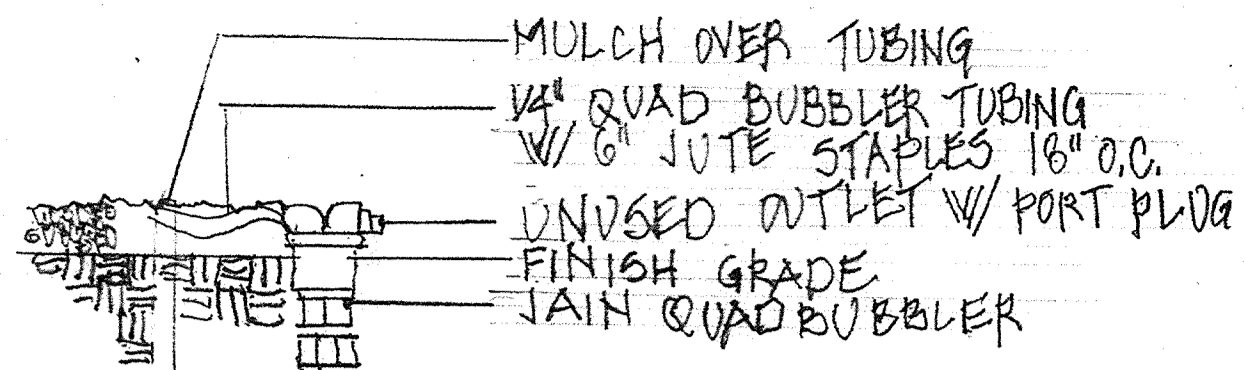 MULCH OVER TUBING
1/4" QUAD BUBBLER TUBING
W/ 6" JUTE STAPLES 18" O.C.
UNUSED OUTLET W/ PORT PLUG
FINISH GRADE
JAIN QUAD BUBBLER